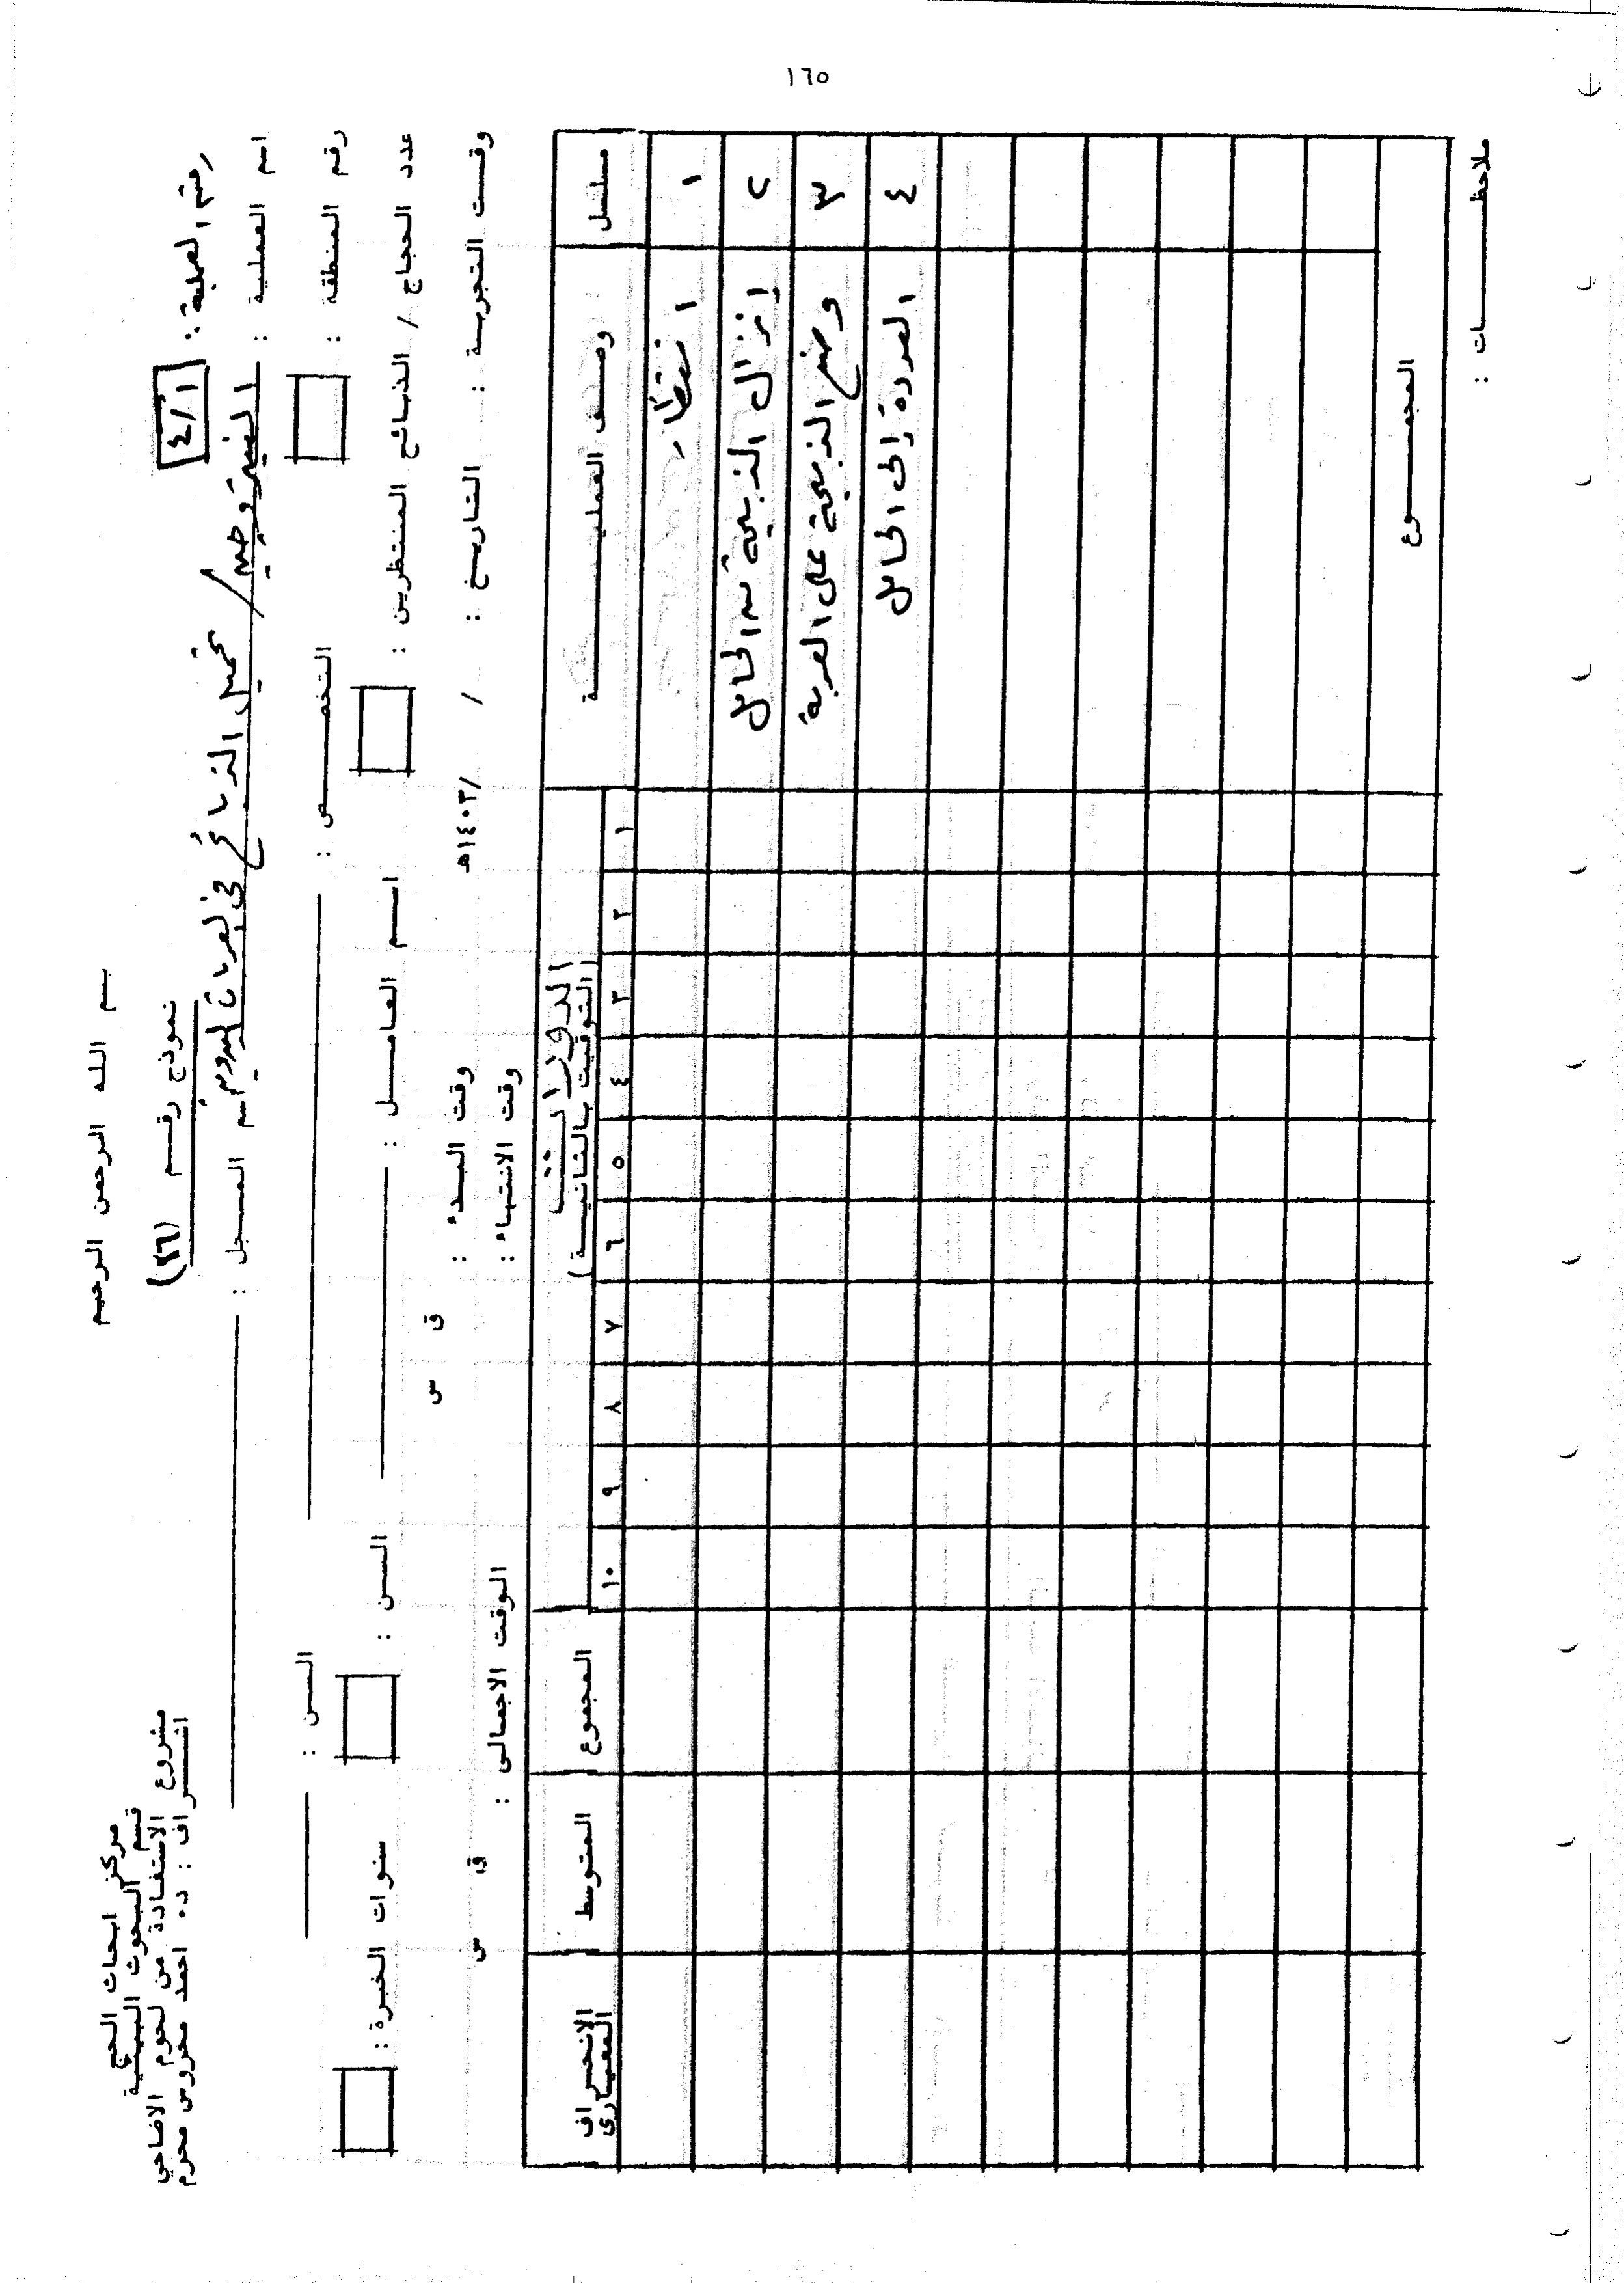 ١٦٥
بسم الله الرحمن الرحيم
مركز ابحاث الحج
قسم البحوث البيئية
مشروع الاستفادة من لحوم الاضاحي
اشراف : د. احمد محروس محرم
نموذج رقم (٢٦)
رقم العملية : ٤/١
اسم العملية : / تحميل الذبائح في العربات
اسم المسجل :
رقم المنطقة :
التخصص :
السن :
عدد الحجاج / الذبائح المنتظرين :
اسم العامل :
السن :
سنوات الخبرة :
وقت التجربة :
التاريخ : / /١٤٠٣هـ
وقت البدء : ق س
وقت الانتهاء :
الوقت الاجمالى : ق س
مسلسل
وصف العمليـة
الدورات
(التوقيت بالثانيـة)
١ ٢ ٣ ٤ ٥ ٦ ٧ ٨ ٩ ١٠
المجموع
المتوسط
الانحراف المعياري
١ انتظار
٢ إنزال الذبيحة من الحامل
٣ وضع الذبيحة على العربة
٤ العودة إلى الحامل
المجمـوع
ملاحظـات :